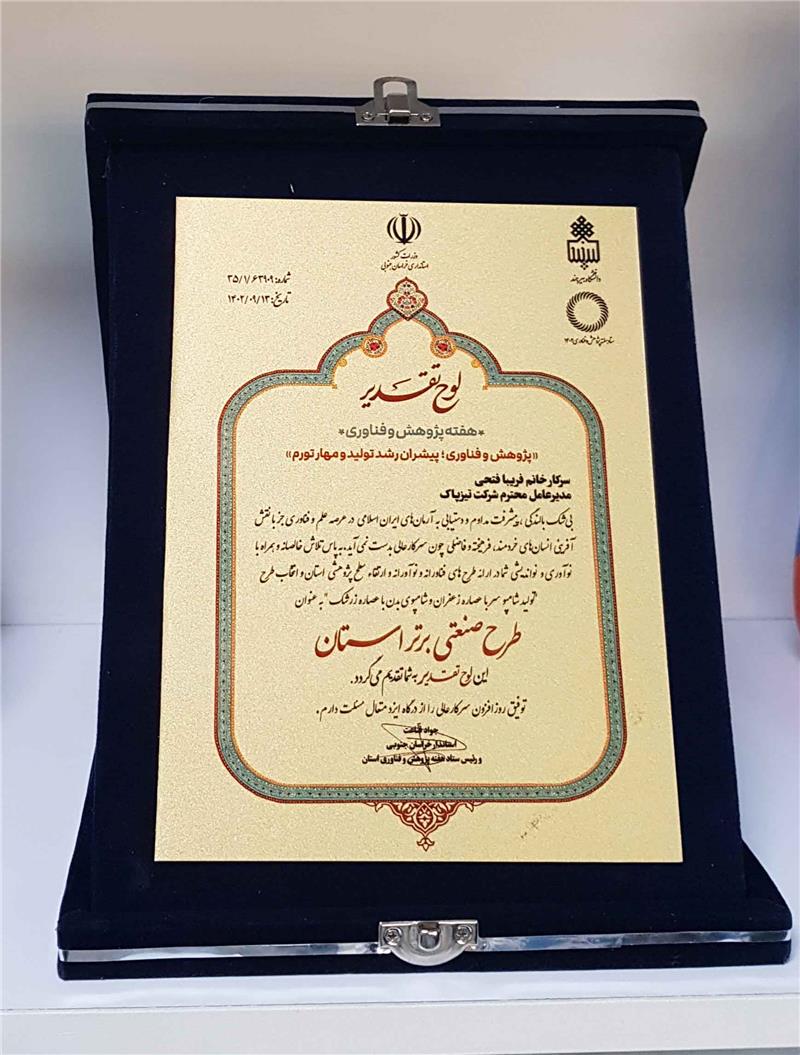 وزارت کشور
استانداری خراسان جنوبی
دانشگاه بیرجند
ستاد هفته پژوهش و فناوری ۱۴۰۲
شماره: ۳۵/۱/۶۳۹۰۹
تاریخ: ۱۴۰۲/۰۹/۱۳
لوح تقدیر
*هفته پژوهش و فناوری*
«پژوهش و فناوری؛ پیشران رشد تولید و مهار تورم»
سرکار خانم فریبا فتحی
مدیرعامل محترم شرکت تیزپاک
بی‌شک بالندگی، پیشرفت مداوم و دستیابی به آرمان‌های ایران اسلامی در عرصه علم و فناوری جز با نقش
آفرینی انسان‌های خردمند، فرهیخته و فاضلی چون سرکارعالی بدست نمی‌آید. به پاس تلاش خالصانه و همراه با
نوآوری و نواندیشی شما در ارائه طرح های فناورانه و نوآورانه و ارتقاء سطح پژوهشی استان و انتخاب طرح
"تولید شامپو سر با عصاره زعفران و شامپوی بدن با عصاره زرشک" به عنوان
طرح صنعتی برتر استان
این لوح تقدیر به شما تقدیم می‌گردد.
توفیق روزافزون سرکارعالی را از درگاه ایزد متعال مسئلت دارم.
جواد قناعت
استاندار خراسان جنوبی
و رئیس ستاد هفته پژوهش و فناوری استان